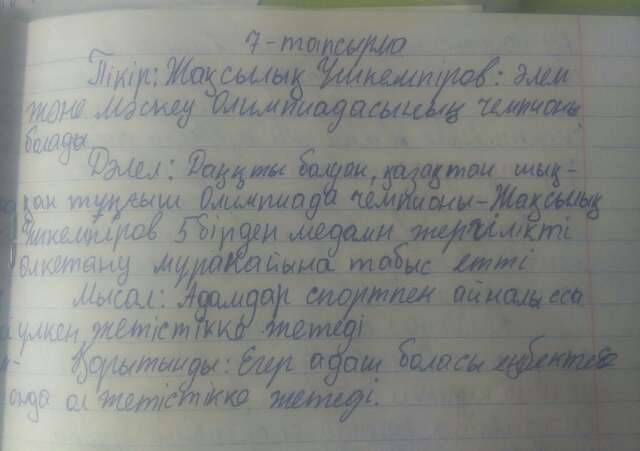 7-тапсырма
Пікір: Жақсылық Үшкемпіров: Әлем
және Мәскеу Олимпиадасының чемпионы
болады
Дәлел: Даңқты болған, қазақтан шық-
қан тұңғыш Олимпиада чемпионы-Жақсылық
Үшкемпіров 5 бірден медалін жергілікті
өлкетану мұражайына табыс етті
Мысал: Адамдар спортпен айналысса
үлкен жетістікке жетеді
Қорытынды: Егер адам баласы еңбектесе
онда ол жетістікке жетеді.